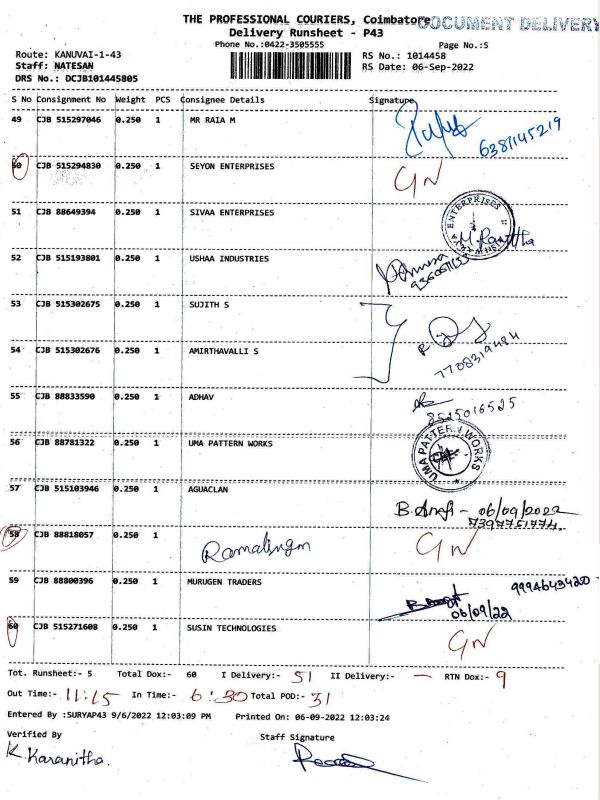 THE PROFESSIONAL COURIERS, Coimbatore
DOCUMENT DELIVERY
Delivery Runsheet - P43
Phone No.:0422-3505555
Page No.:5
Route: KANUVAI-1-43
RS No.: 1014458
Staff: NATESAN
RS Date: 06-Sep-2022
DRS No.: DCJB101445805
S No Consignment No Weight PCS Consignee Details Signature
49 CJB 515297046 0.250 1 MR RAIA M
6381145219
50 CJB 515294830 0.250 1 SEYON ENTERPRISES GN
51 CJB 88649394 0.250 1 SIVAA ENTERPRISES
ENTERPRISES
52 CJB 515193801 0.250 1 USHAA INDUSTRIES
53 CJB 515302675 0.250 1 SUJITH S
54 CJB 515302676 0.250 1 AMIRTHAVALLI S
7708319484
55 CJB 88833590 0.250 1 ADHAV
8525016525
56 CJB 88781322 0.250 1 UMA PATTERN WORKS
UMA PATTERN WORKS
57 CJB 515103946 0.250 1 AGUACLAN
06/09/2022
7397751774.
58 CJB 88818057 0.250 1 GN
59 CJB 88800396 0.250 1 MURUGEN TRADERS
9994643420
06/09/22
60 CJB 515271608 0.250 1 SUSIN TECHNOLOGIES GN
Tot. Runsheet:- 5 Total Dox:- 60 I Delivery:- 51 II Delivery:- — RTN Dox:- 9
Out Time:- 11:15 In Time:- 6:30 Total POD:- 31
Entered By :SURYAP43 9/6/2022 12:03:09 PM Printed On: 06-09-2022 12:03:24
Verified By
Staff Signature
K. Karanitha.